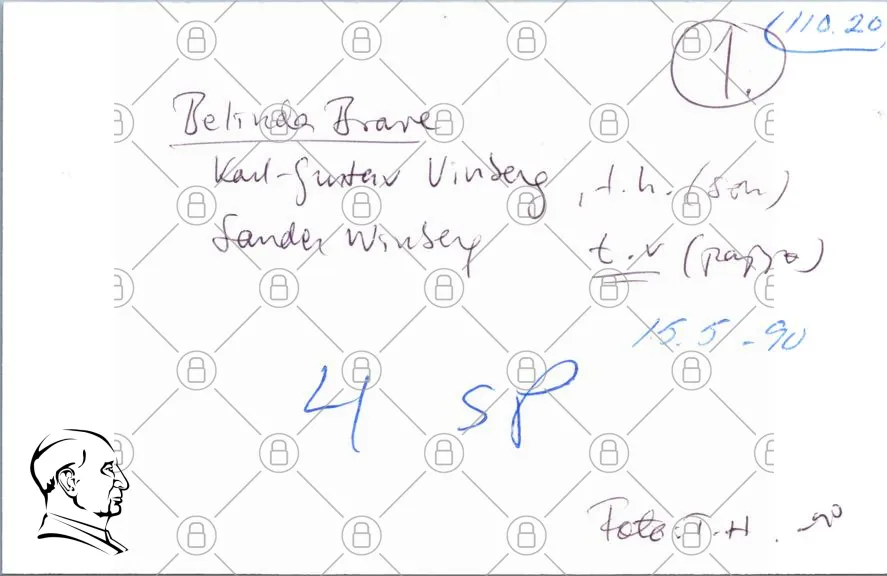 (110.20
1.
Belinda Brave
Karl-Gustav Vinberg, t.h. (son)
Sander Winberg t.v (pappa)
15.5-90
4 SP
Foto: T-H. -90